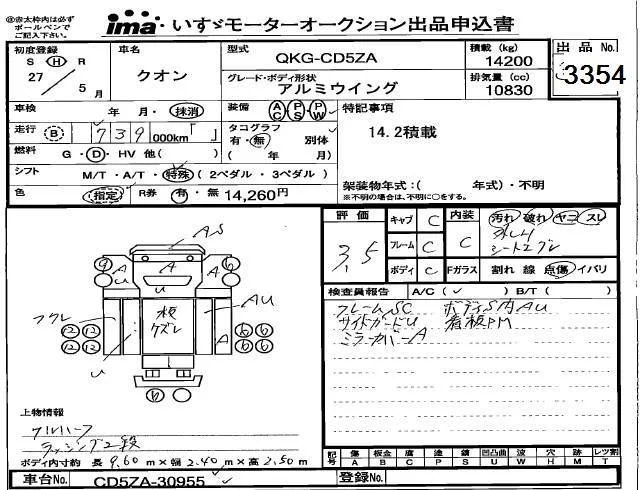 ◎赤太枠内は必ず
ボールペンで
ご記入下さい
ima・いすゞモーターオークション出品申込書
初度登録
S H R
27
5 月
車名
クオン
型式
QKG-CD5ZA
グレード・ボディ形状
アルミウイング
積載 (kg)
14200
排気量 (cc)
10830
出品 No.
3354
車検
年 月・抹消
装備
AC PS PW
特記事項
14.2積載
走行 B 739 000km「 」
タコグラフ
有・無 別体
( 年 月)
燃料
G・D・HV 他( )
シフト
M/T・A/T・特殊(2ペダル・3ペダル)
架装物年式:( 年式)・不明
※不明の場合は、不明に○をする。
色
指定
R券 有・無 14,260円
評価
3.5
キャブ C
フレーム C
ボディ C
内装
C
汚れ 破れ ヤコ スレ
シートコゲレ
Fガラス
割れ 線 点傷 イバリ
検査員報告
A/C( ✓ ) B/T( )
フレームSC ボデーS内AU
サイドガードU 看板PM
ミラーカバーA
AS
A
A
A
U
U
板
ケズレ
フクレ
AU
A
U
9
6
6
12 12
12 12
6 6
6 6
6
上物情報
アルハーフ
ラッシング2段
ボディ内寸約 長 9.60 m×幅 2.40 m×高 2.50 m
記号 傷 板金 腐 塗 錆 凹凸曲 波 穴 歪 補 レツ割
A B C P S U W H M T
車台No. CD5ZA-30955
登録No.